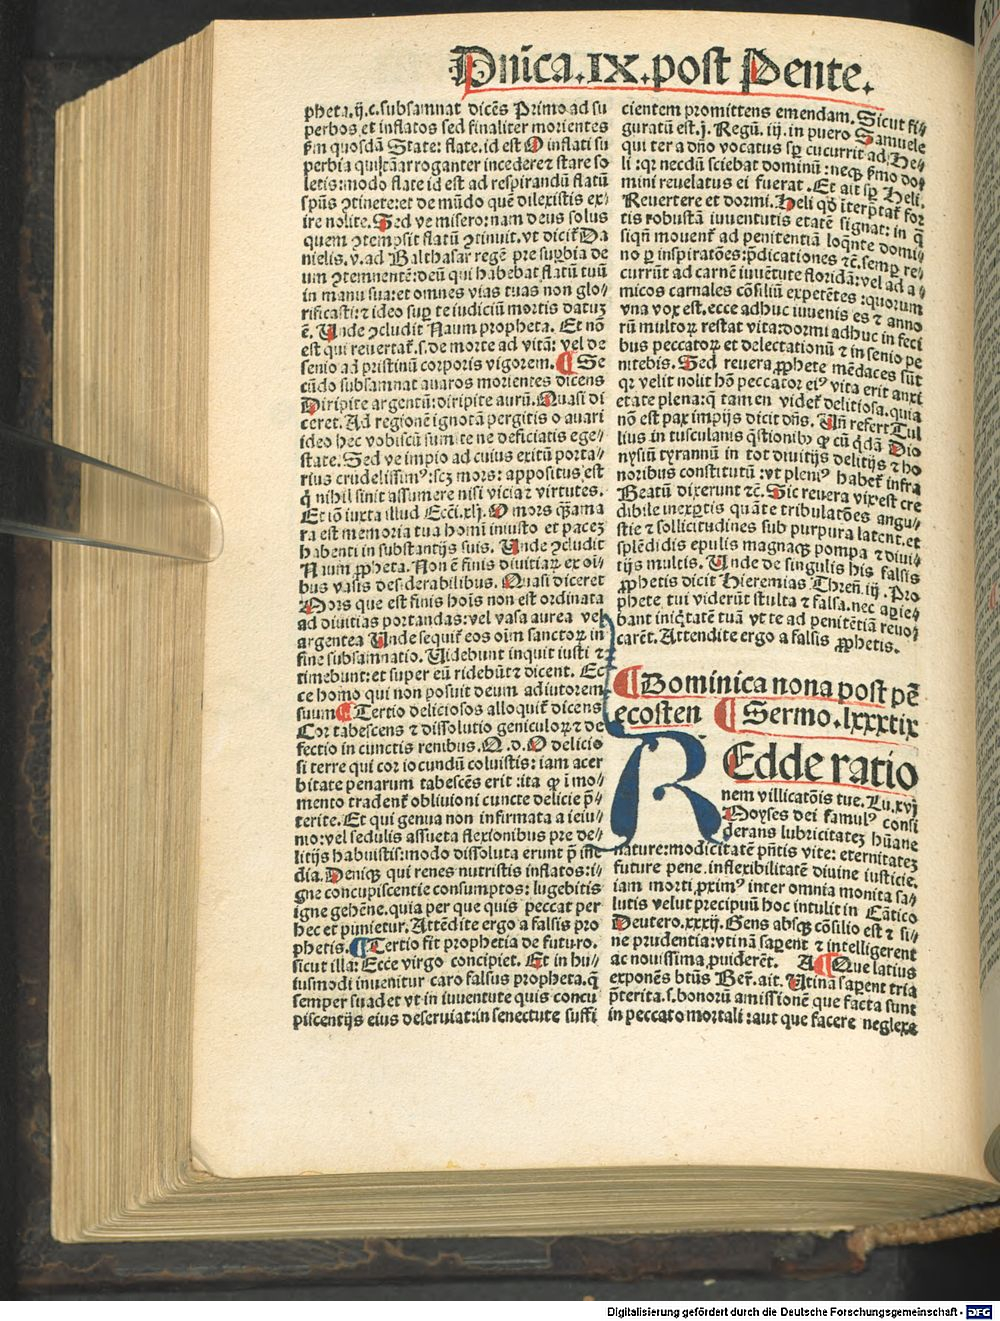 Dn̄ica.IX.post Pente.
pheta.ij.c.subsannat dicēs Primo ad su
perbos et inflatos sed finaliter morientes
ẜm quosdā State: flate.id est O inflati su
perbia qui arroganter incedere ⁊ stare so
letis:modo flate id est ad respirandū flatū
spūs ꝯtinete:et de mūdo quē dilexistis ex⸗
ire nolite. Sed ve misero:nam deus solus
quem ꝯtempsit flatū ꝯtinuit.vt dicit᷑ Da
nielis.v.ad Balthasar regē pre suꝑbia de
um ꝯtemnentē:deū qui habebat flatū tuū
in manu sua:et omnes vias tuas non glo⸗
rificasti:⁊ ideo suꝑ te iudiciū mortis datuꝫ
ē. Unde ꝯcludit Naum propheta. Et nō
est qui reuertat᷑.s.de morte ad vitā: vel de
senio ad pristinū corporis vigorem. ¶ Se
cūdo subsannat auaros morientes dicens
Diripite argentū:diripite aurū. Quasi di
ceret. Ad regionē ignotā pergitis o auari
ideo hec vobiscū sumite ne deficiatis ege⸗
state. Sed ve impio ad cuius exitū porta⸗
rius crudelissimꝰ:scꝫ mors: appositus est
q̇ nihil sinit assumere nisi vicia ⁊ virtutes.
Et iō iuxta illud Ecci.xlj. O mors q̄ꝫ ama
ra est memoria tua homī iniusto et paceꝫ
habenti in substantijs suis. Unde ꝯcludit
Naum ꝓpheta. Non ē finis diuitiaꝝ ex oī⸗
bus vasis desiderabilibus. Quasi diceret
Mors que est finis hoīs non est ordinata
ad diuitias portandas:vel vasa aurea vel
argentea Unde sequit᷑ eos oīm sanctoꝝ in
fine subsannatio. Uidebunt inquit iusti ⁊
timebunt:et super eū ridebūt ⁊ dicent. Ec
ce homo qui non posuit deum adiutorem
suum ¶ Tertio deliciosos alloquit᷑ dicens
Cor tabescens ⁊ dissolutio geniculoꝝ ⁊ de
fectio in cunctis renibus. Q.d. O delicio
si terre qui cor iocundū coluistis: iam acer
bitate penarum tabescēs erit:ita ꝙ ī mo⸗
mento tradent᷑ obliuioni cuncte delicie p̄⸗
terite. Et qui genua non infirmata a ieiu⸗
nio:vel sedulis assueta flexionibus pre de⸗
litijs habuistis:modo dissoluta erunt p̄ ine
dia. Deniqꝫ qui renes nutristis inflatos:i⸗
gne concupiscentie consumptos: lugebitis
igne gehēne.quia per que quis peccat per
hec et punietur. Attēdite ergo a falsis pro
phetis. ¶ Tertio fit prophetia de futuro.
sicut illa: Ecce virgo concipiet. Et in hu⸗
iusmodi inuenitur caro falsus propheta.q̄
semper suadet vt in iuuentute quis concu
piscentijs eius deseruiat:in senectute suffi
cientem promittens emendam. Sicut fi⸗
guratū est.j. Regū. iij. in puero Samuele
qui ter a dn̄o vocatus sꝑ cucurrit ad He⸗
li :qꝛ necdū sciebat dominū :neqꝫ ẜmo do⸗
mini reuelatus ei fuerat. Et ait sꝑ Heli.
Reuertere et dormi. Heli qd̓ īterp̄tat᷑ for
tis robustā iuuentutis etatē signat: in q̄
siqn̄ mouent᷑ ad penitentiā loq̄nte domi⸗
no ꝑ inspiratōes:p̄dicationes ⁊c̄.semꝑ re⸗
currūt ad carnē iuuētute floridā:vel ad a⸗
micos carnales cōsiliū expetētes :quorum
vna vox est.ecce adhuc iuuenis es ⁊ anno
rū multoꝝ restat vita:dormi adhuc in feci
bus peccatoꝝ et delectationū ⁊ in senio pe
nitebis. Sed reuera ꝓphete mēdaces sūt
qꝛ velit nolit hō peccator eiꝰ vita erit anxi
etate plena:q̄ tamen videt᷑ delitiosa.quia
nō est pax impijs dicit dn̄s. Un̄ refert Tul
lius in tusculanis q̄stionibꝫ ꝙ cū q̄dā Dio
nysiū tyrannū in tot diuitijs delitijs ⁊ ho
noribus constitutū :vt pleniꝰ habet᷑ infra
Beatū dixerunt ⁊c̄. Sic reuera vix est cre
dibile inexꝑtis quāte tribulatōes angu⸗
stie ⁊ sollicitudines sub purpura latent.et
splēdidis epulis magnaqꝫ pompa ⁊ diui⸗
tijs multis. Unde de singulis his falsis
ꝓphetis dicit Hieremias Thren̄. iij. Pro
phete tui viderūt stulta ⁊ falsa.nec aꝑie⸗
bant iniq̇tatē tuā vt te ad penitētiā reuo⸗
carēt. Attendite ergo a falsis ꝓphetis.
¶ Dominica nona post pē
ecosten ¶ Sermo.lxxxix
REdde ratio
nem villicatōis tue. Lu.xvj
Moyses dei famulꝰ consi
derans lubricitateꝫ hūane
nature:modicitatē p̄ntis vite: eternitateꝫ
future pene.inflexibilitatē diuine iusticie.
iam morti ꝓximꝰ inter omnia monita sa⸗
lutis velut precipuū hoc intulit in Cātico
Deutero.xxxij. Gens absqꝫ cōsilio est ⁊ si⸗
ne prudentia:vtinā saꝑent ⁊ intelligerent
ac nouissima ꝓuiderēt. A ¶ Que latius
exponēs btūs Ber̄.ait. Utinā saꝑent tria
p̄terita.s.bonorū amissionē que facta sunt
in peccato mortali :aut que facere neglexe
Digitalisierung gefördert durch die Deutsche Forschungsgemeinschaft - DFG